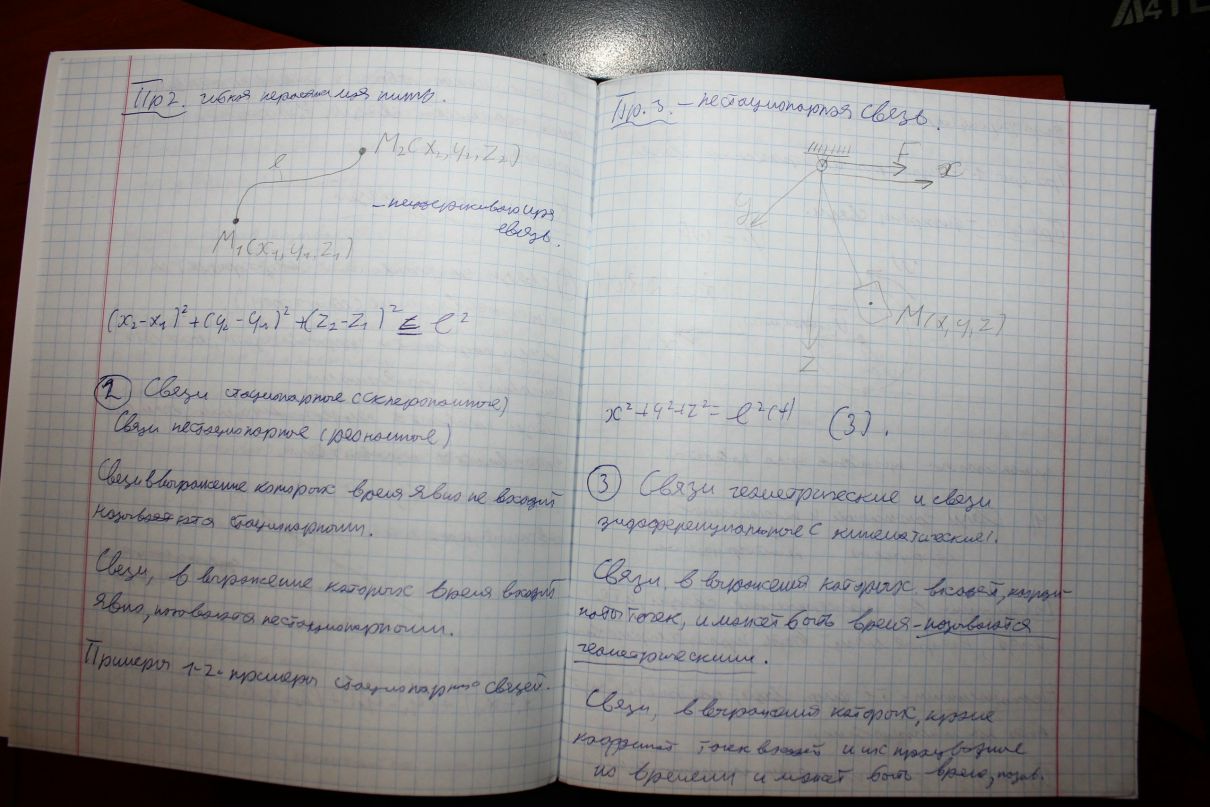 Пр 2. гибкая нерастяжимая нить.
M₂(x₂, y₂, z₂)
l
– неудерживающая
связь.
M₁(x₁, y₁, z₁)
(x₂-x₁)²+(y₂-y₁)²+(z₂-z₁)² ≤ l²
2 Связи стационарные (склерономные)
Связи нестационарные (реономные)
Связи в выражение которых время явно не входит
называются стационарными.
Связи, в выражение которых время входит
явно, называются нестационарными.
Примеры 1-2-примеры стационарных связей.
Пр. 3. – нестационарная связь.
F
x
y
M(x, y, z)
z
x²+y²+z²= l²(t) (3).
3 Связи геометрические и связи
дифференциальные (кинематические).
Связи, в выражения которых входят, коорди-
наты точек, и может быть время-называются
геометрическими.
Связи, в выражения которых, кроме
координат точек входят и их производные
по времени и может быть время, назыв.